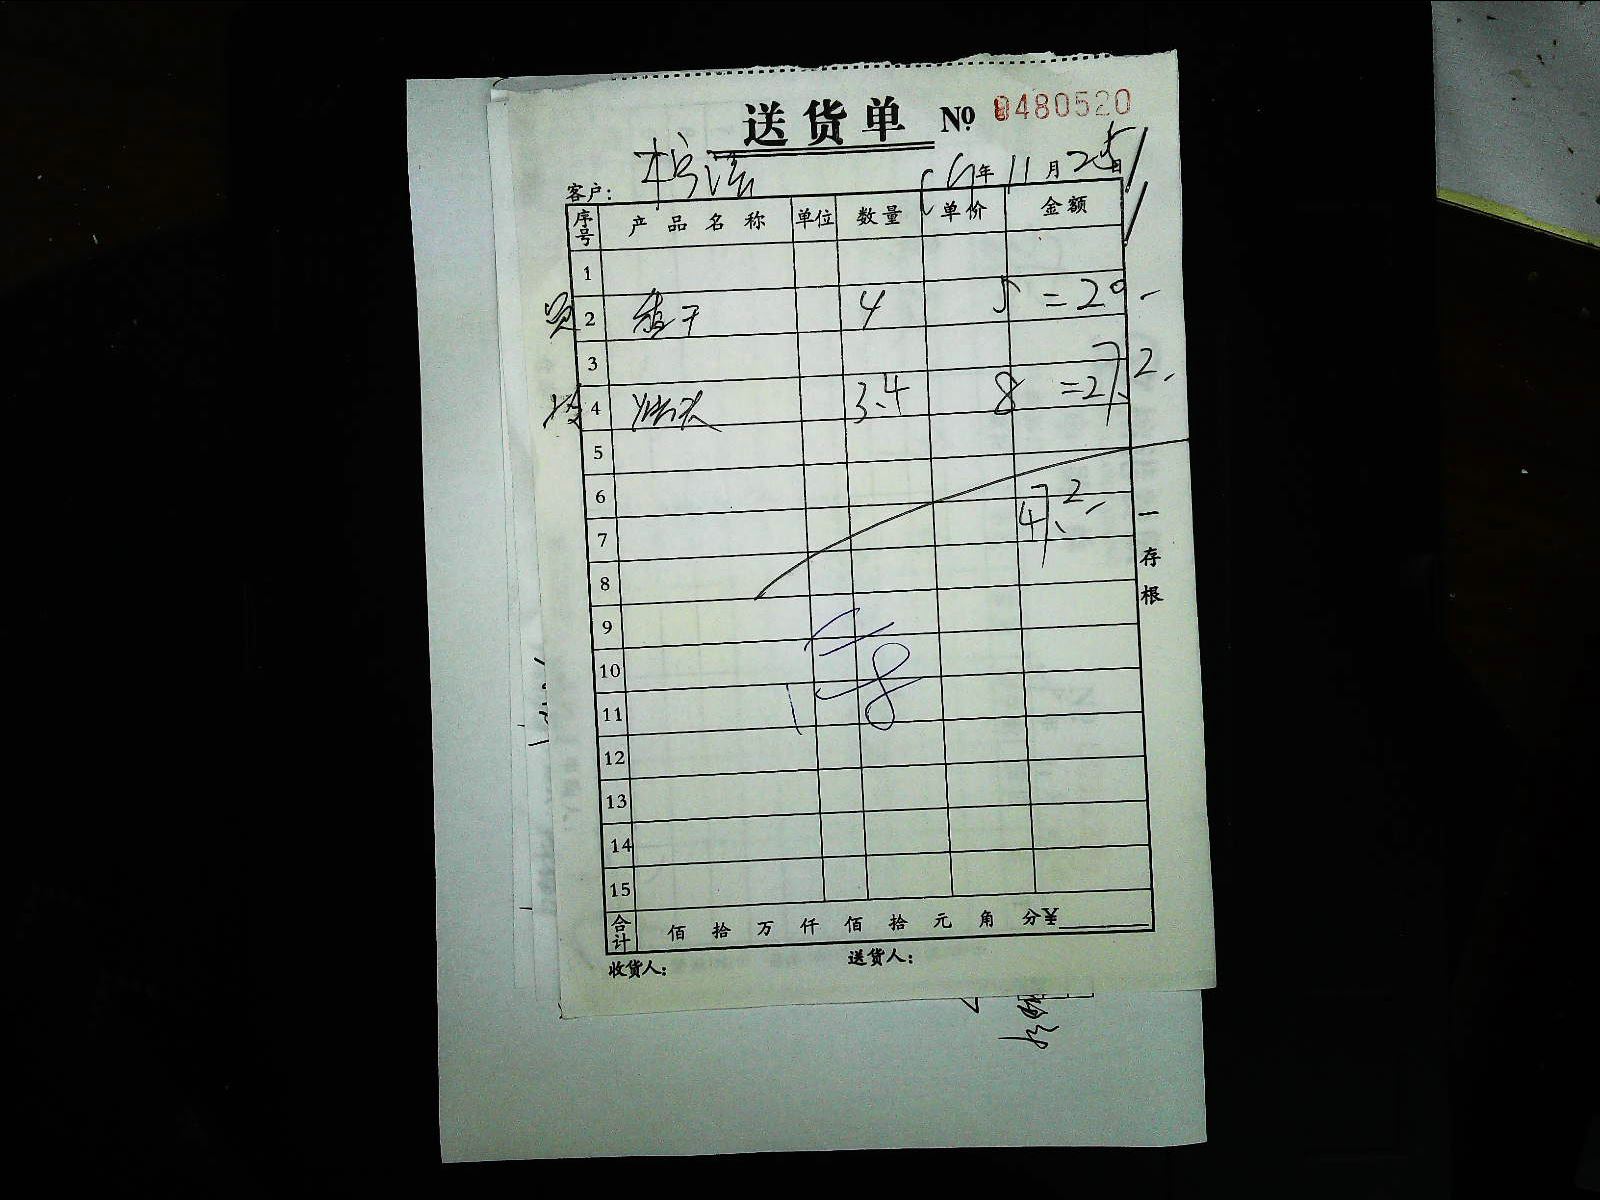 送货单 № 0480520
客户：
年 11 月 25 日
序号 产品名称 单位 数量 单价 金额
1
2 香干 4 5 =20.-
3
4 3.4 8 =27.2.-
5
6
7 47.2-
8
9
10
11
12
13
14
15
合计 佰 拾 万 仟 佰 拾 元 角 分¥
收货人： 送货人：
一存根